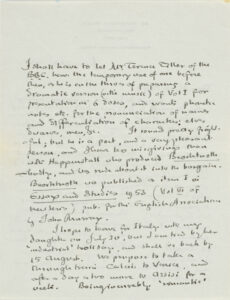 I shall have to let Mr. Terence Tiller of the
BBC, have the temporary use of one before
then, as he is on the throes of preparing a
dramatic version (with music) of Vol I for
presentation in 6 parts, and wants phonetic
notes etc. for the pronunciation of names
and differentiation of characters, elves
dwarves, men, &c. It sounds pretty
ful; but he is a poet, and a very pleasant
person, and I have less misgivings than
Heppenstall who produced Beorhtnoth
badly, and was rude about it into the bargain.
Beorhtnoth was published as item I in
Essays and Studies 1953 (Vol VI of
new series), pub. for the English Association
by John Murray.
I hope to leave for Italy with my
daughter on July 30, but I am tied by her
industrial holiday and shall be back by
15 August. We propose to take a
through train Calais to Venice, and
after a day or two move to Assisi for a
week. Being unavoidably 'romantic'